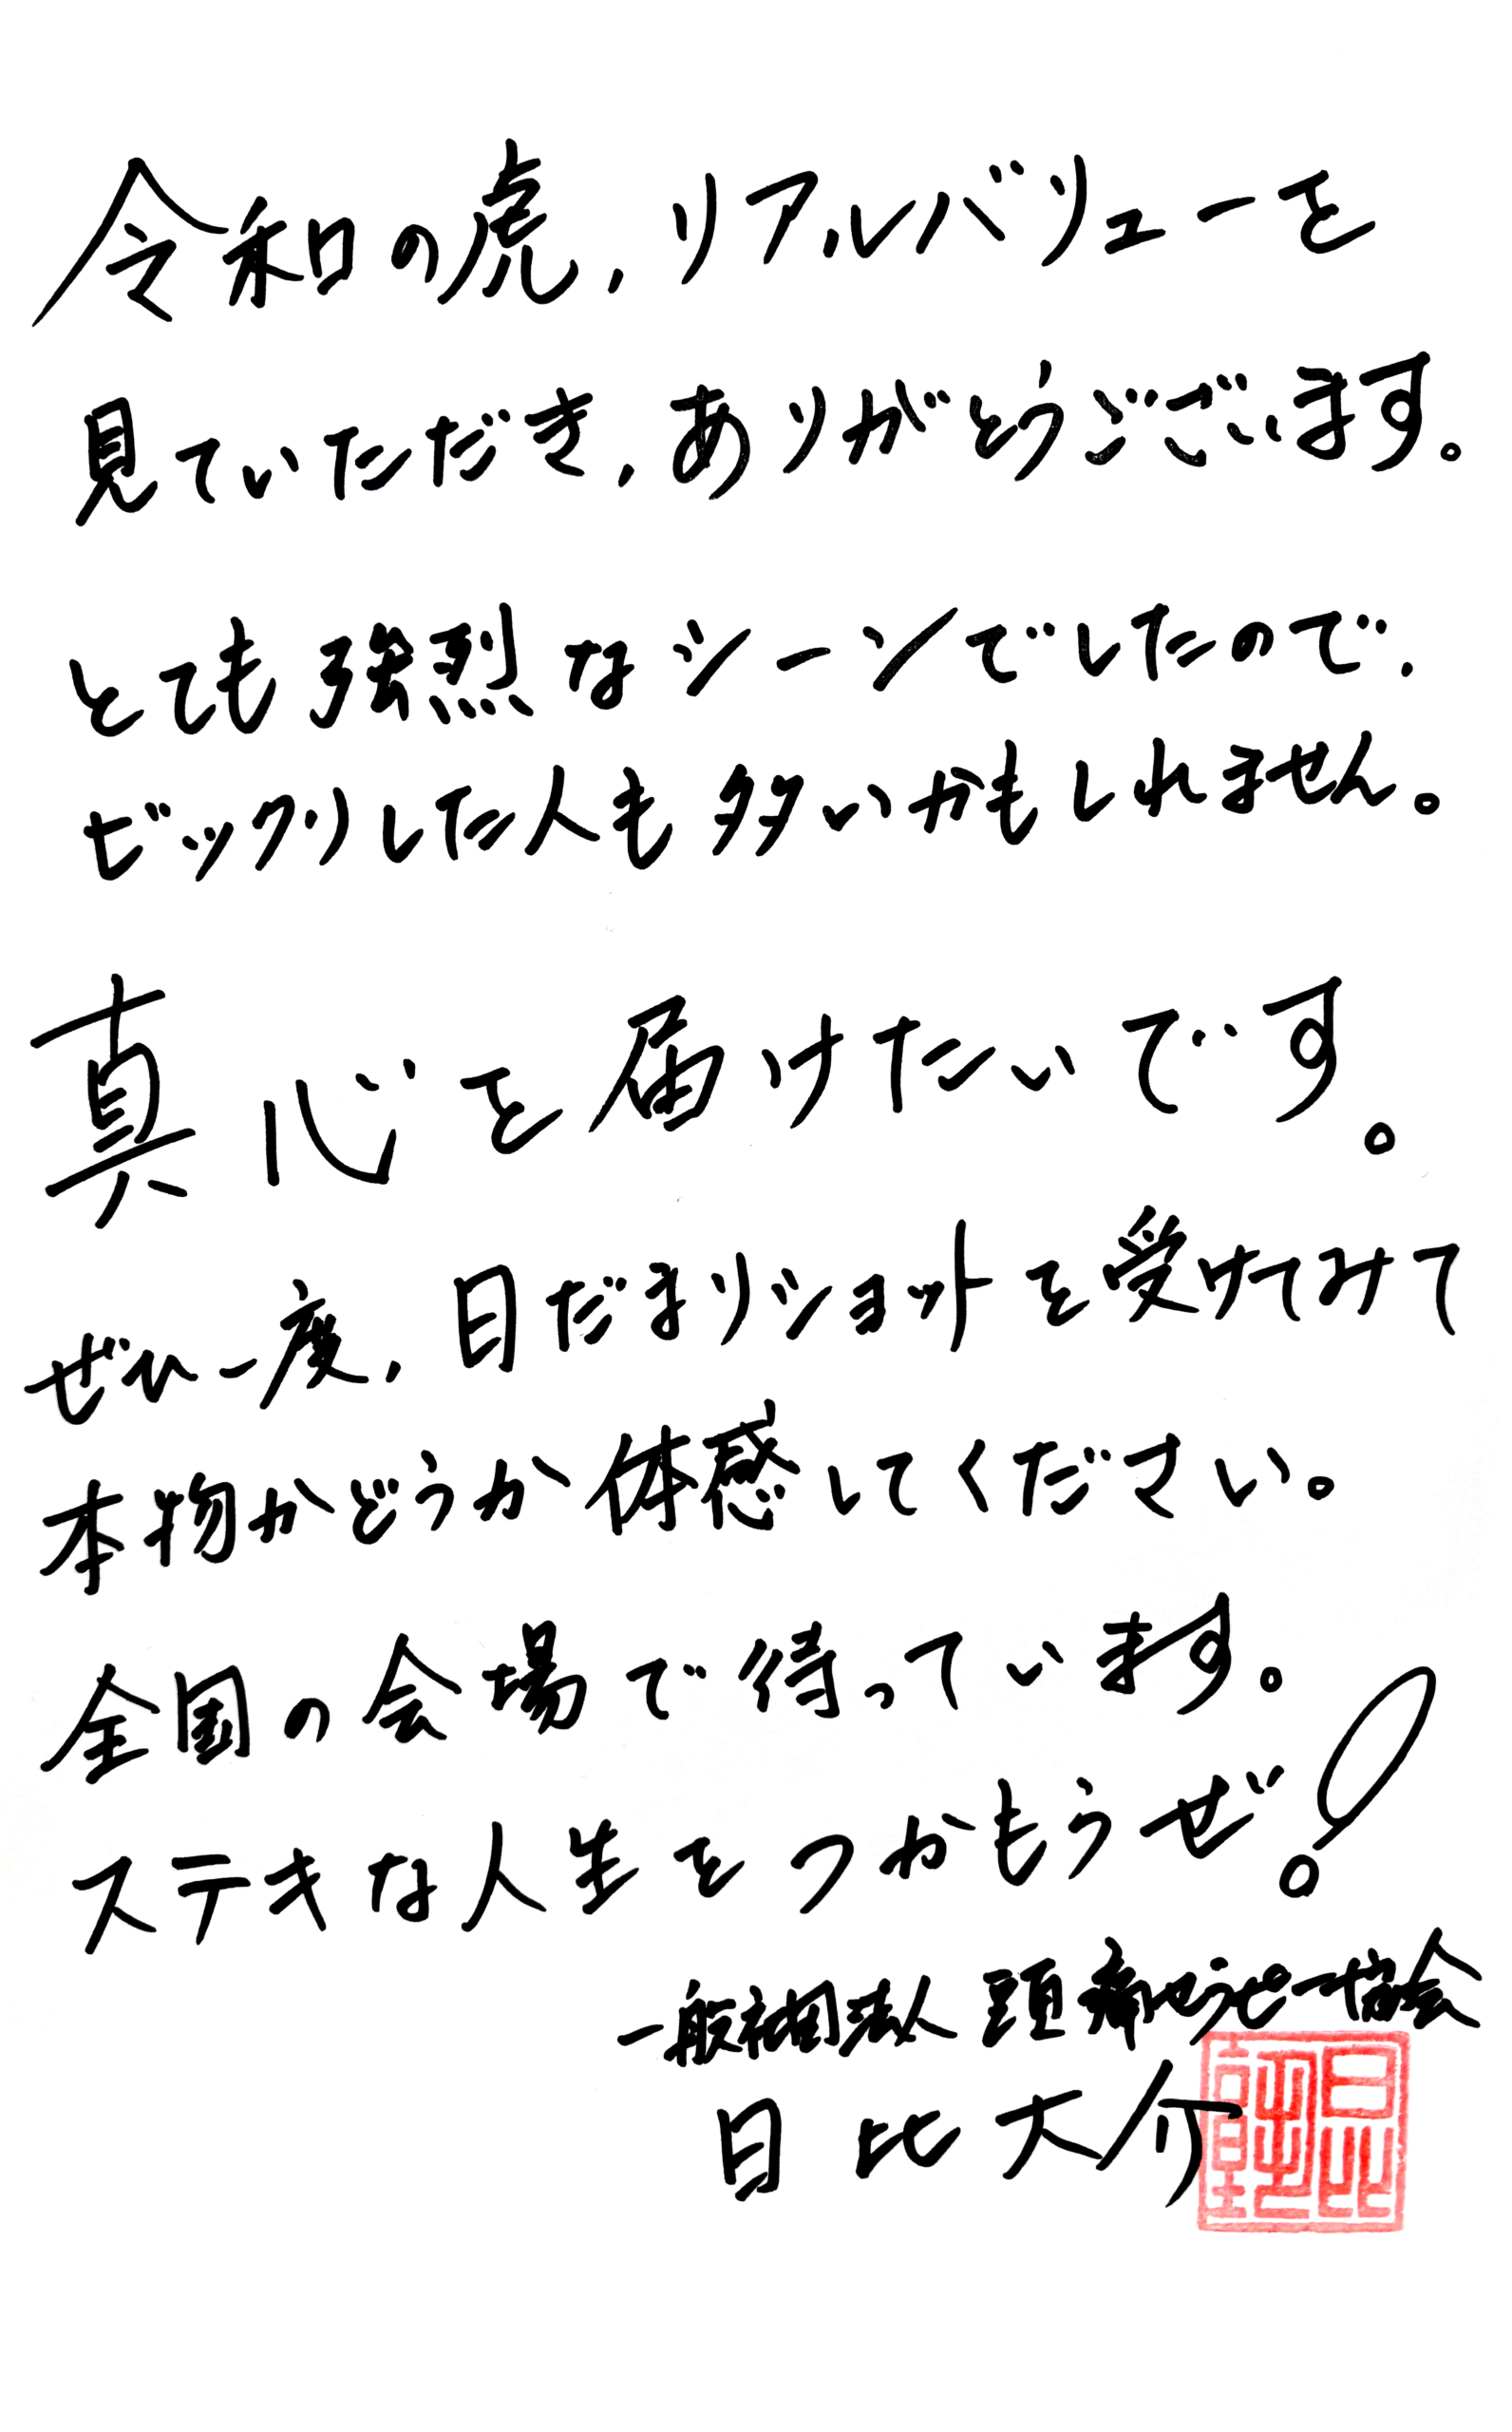 令和の虎、リアルバリューを
見ていただき、ありがとうございます。
とても強烈なシーンでしたので、
ビックリした人も多いかもしれません。
真心を届けたいです。
ぜひ一度、日だまりショットを受けてみて
本物かどうか体感してください。
全国の会場で待っています。
ステキな人生をつかもうぜ！
一般社団法人 頭痛セラピー協会
日比大介